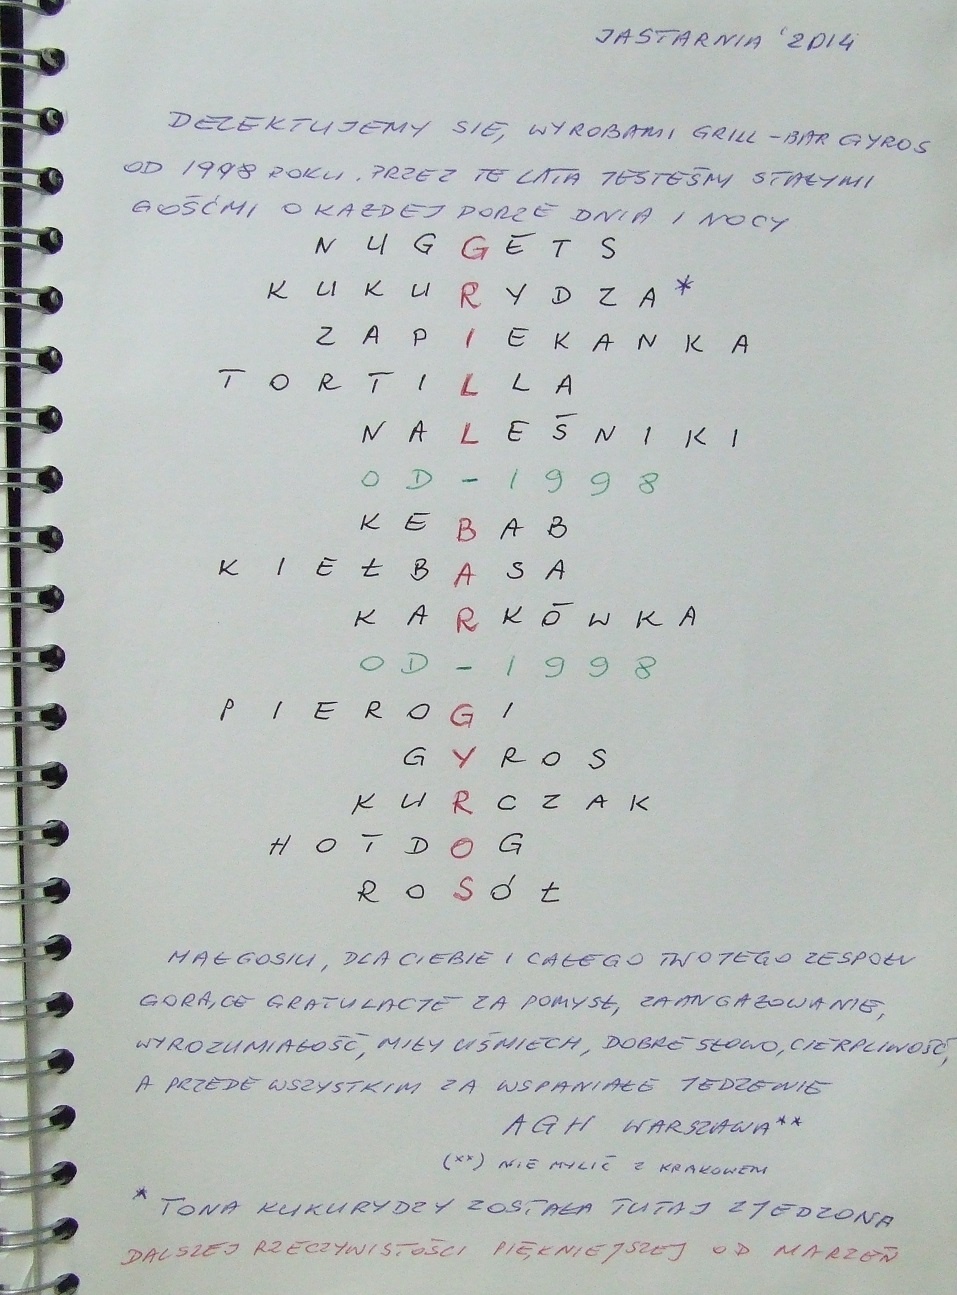 JASTARNIA '2014
DEZEKTUJEMY SIĘ, WYROBAMI GRILL-BAR GYROS
OD 1998 ROKU. PRZEZ TE LATA JESTEŚMY STAŁYMI
GOŚĆMI O KAŻDEJ PORZE DNIA I NOCY
N U G G E T S
K U K U R Y D Z A *
Z A P I E K A N K A
T O R T I L L A
N A L E Ś N I K I
O D - 1 9 9 8
K E B A B
K I E Ł B A S A
K A R K Ó W K A
O D - 1 9 9 8
P I E R O G I
G Y R O S
K U R C Z A K
H O T D O G
R O S Ó Ł
MAŁGOSIU, DLA CIEBIE I CAŁEGO TWOJEGO ZESPOŁU
GORĄCE GRATULACJE ZA POMYSŁ, ZAANGAŻOWANIE,
WYROZUMIAŁOŚĆ, MIŁY UŚMIECH, DOBRE SŁOWO, CIERPLIWOŚĆ,
A PRZEDE WSZYSTKIM ZA WSPANIAŁE JEDZENIE
AGH WARSZAWA**
(**) NIE MYLIĆ Z KRAKOWEM
* TONA KUKURYDZY ZOSTAŁA TUTAJ ZJEDZONA
DALSZEJ RZECZYWISTOŚCI PIĘKNIEJSZEJ OD MARZEŃ